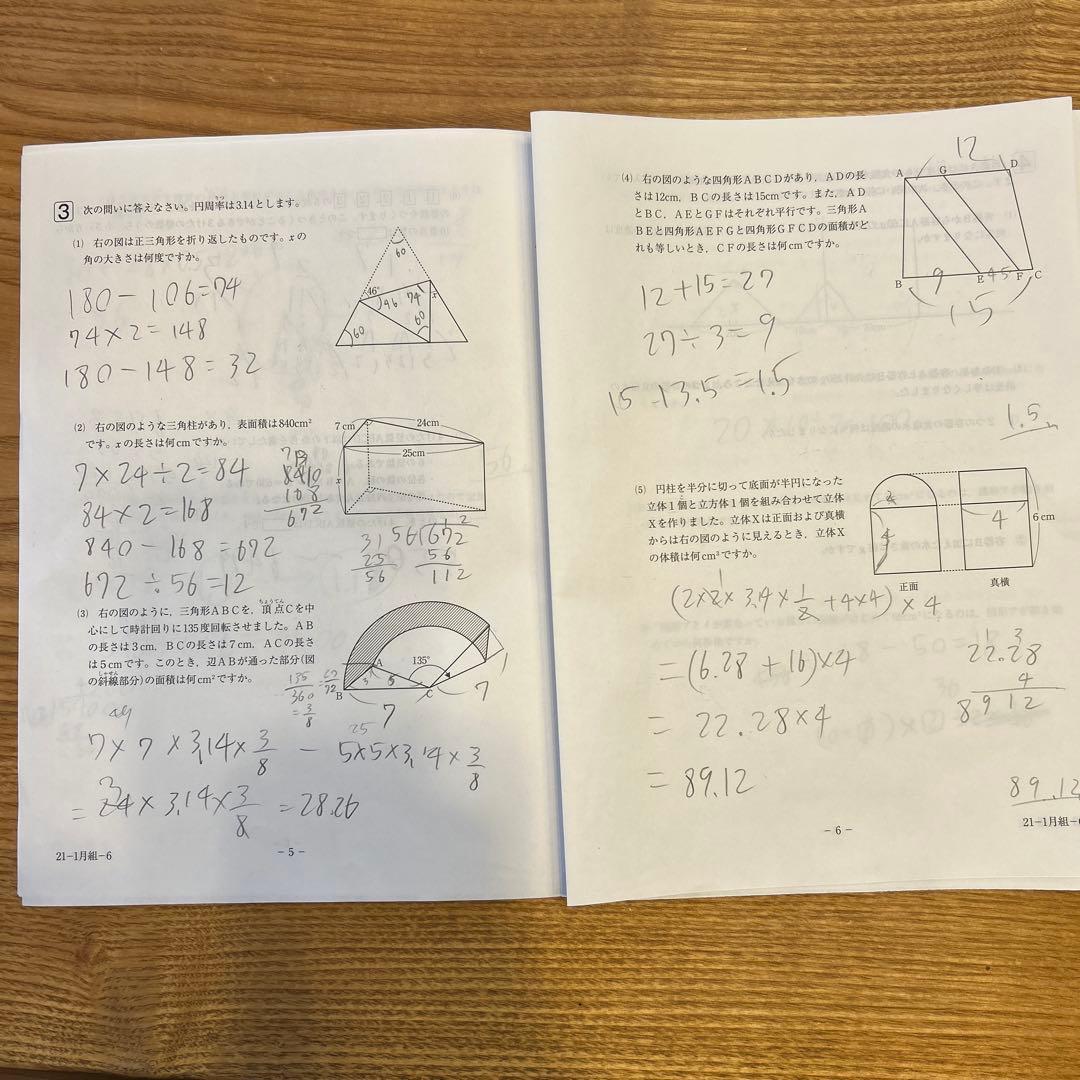 3 次の問いに答えなさい。円周率は3.14とします。
(1) 右の図は正三角形を折り返したものです。xの
角の大きさは何度ですか。
60
46°
96
74
x
60
60
180-106=74
74×2=148
180-148=32
(2) 右の図のような三角柱があり，表面積は840cm²
です。xの長さは何cmですか。
7cm
24cm
25cm
x
7×24÷2=84
84×2=168
840-168=672
672÷56=12
840
168
672
31
25
56
56)672
56
112
(3) 右の図のように，三角形ABCを，頂点Cを中
ちょうてん
心にして時計回りに135度回転させました。AB
の長さは3cm，BCの長さは7cm，ACの長さ
は5cmです。このとき，辺ABが通った部分(図
しゃせん
の斜線部分)の面積は何cm²ですか。
135
360
=3/8
A
135°
3
5
B
C
7
7
49
25
7×7×3.14×3/8 - 5×5×3.14×3/8
=24×3.14×3/8=28.26
21-1月組-6
-5-
(4) 右の図のような四角形ABCDがあり，ADの長
さは12cm，BCの長さは15cmです。また，AD
とBC，AEとGFはそれぞれ平行です。三角形A
BEと四角形AEFGと四角形GFCDの面積がど
れも等しいとき，CFの長さは何cmですか。
12
A
G
D
9
4.5
B
E
F
C
15
12+15=27
27÷3=9
15-13.5=1.5
1.5
(5) 円柱を半分に切って底面が半円になった
立体1個と立方体1個を組み合わせて立体
Xを作りました。立体Xは正面および真横
からは右の図のように見えるとき，立体X
の体積は何cm³ですか。
4
4
6cm
正面
真横
(2×2×3.14×1/2+4×4)×4
=(6.28+16)×4
=22.28×4
=89.12
22.28
4
8912
89.12
-6-
21-1月組-6